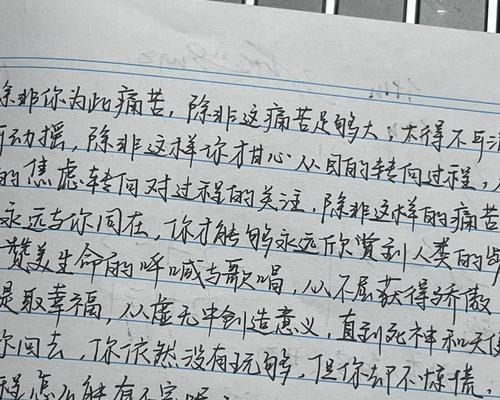 除非你为此痛苦，除非这痛苦足够大，不得不与
动摇，除非这样你才甘心从目的转向过程，
的焦虑转向对过程的关注，除非这样的痛苦
永远与你同在，你才能够永远欣赏到人类的
赞美生命的呼喊与歌唱，从不屈获得骄傲
是取幸福，从虚无中创造意义，直到死神和天使
你回去，你依然没有玩够，但你却不惊慌，
程怎么能有不完呢